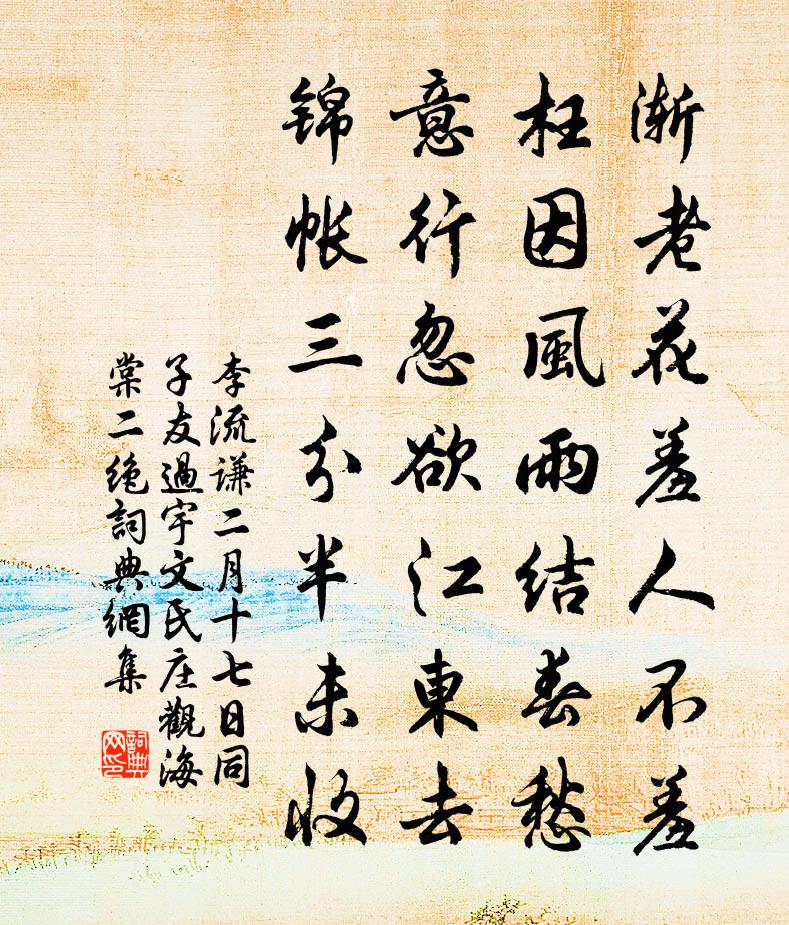 渐老花羞人不羞
枉因風雨结春愁
意行忽欲江東去
锦帐三分半未收
李流谦二月十七日同
子友過宇文氏庄觀海
棠二绝詞典網集
詞典
网印